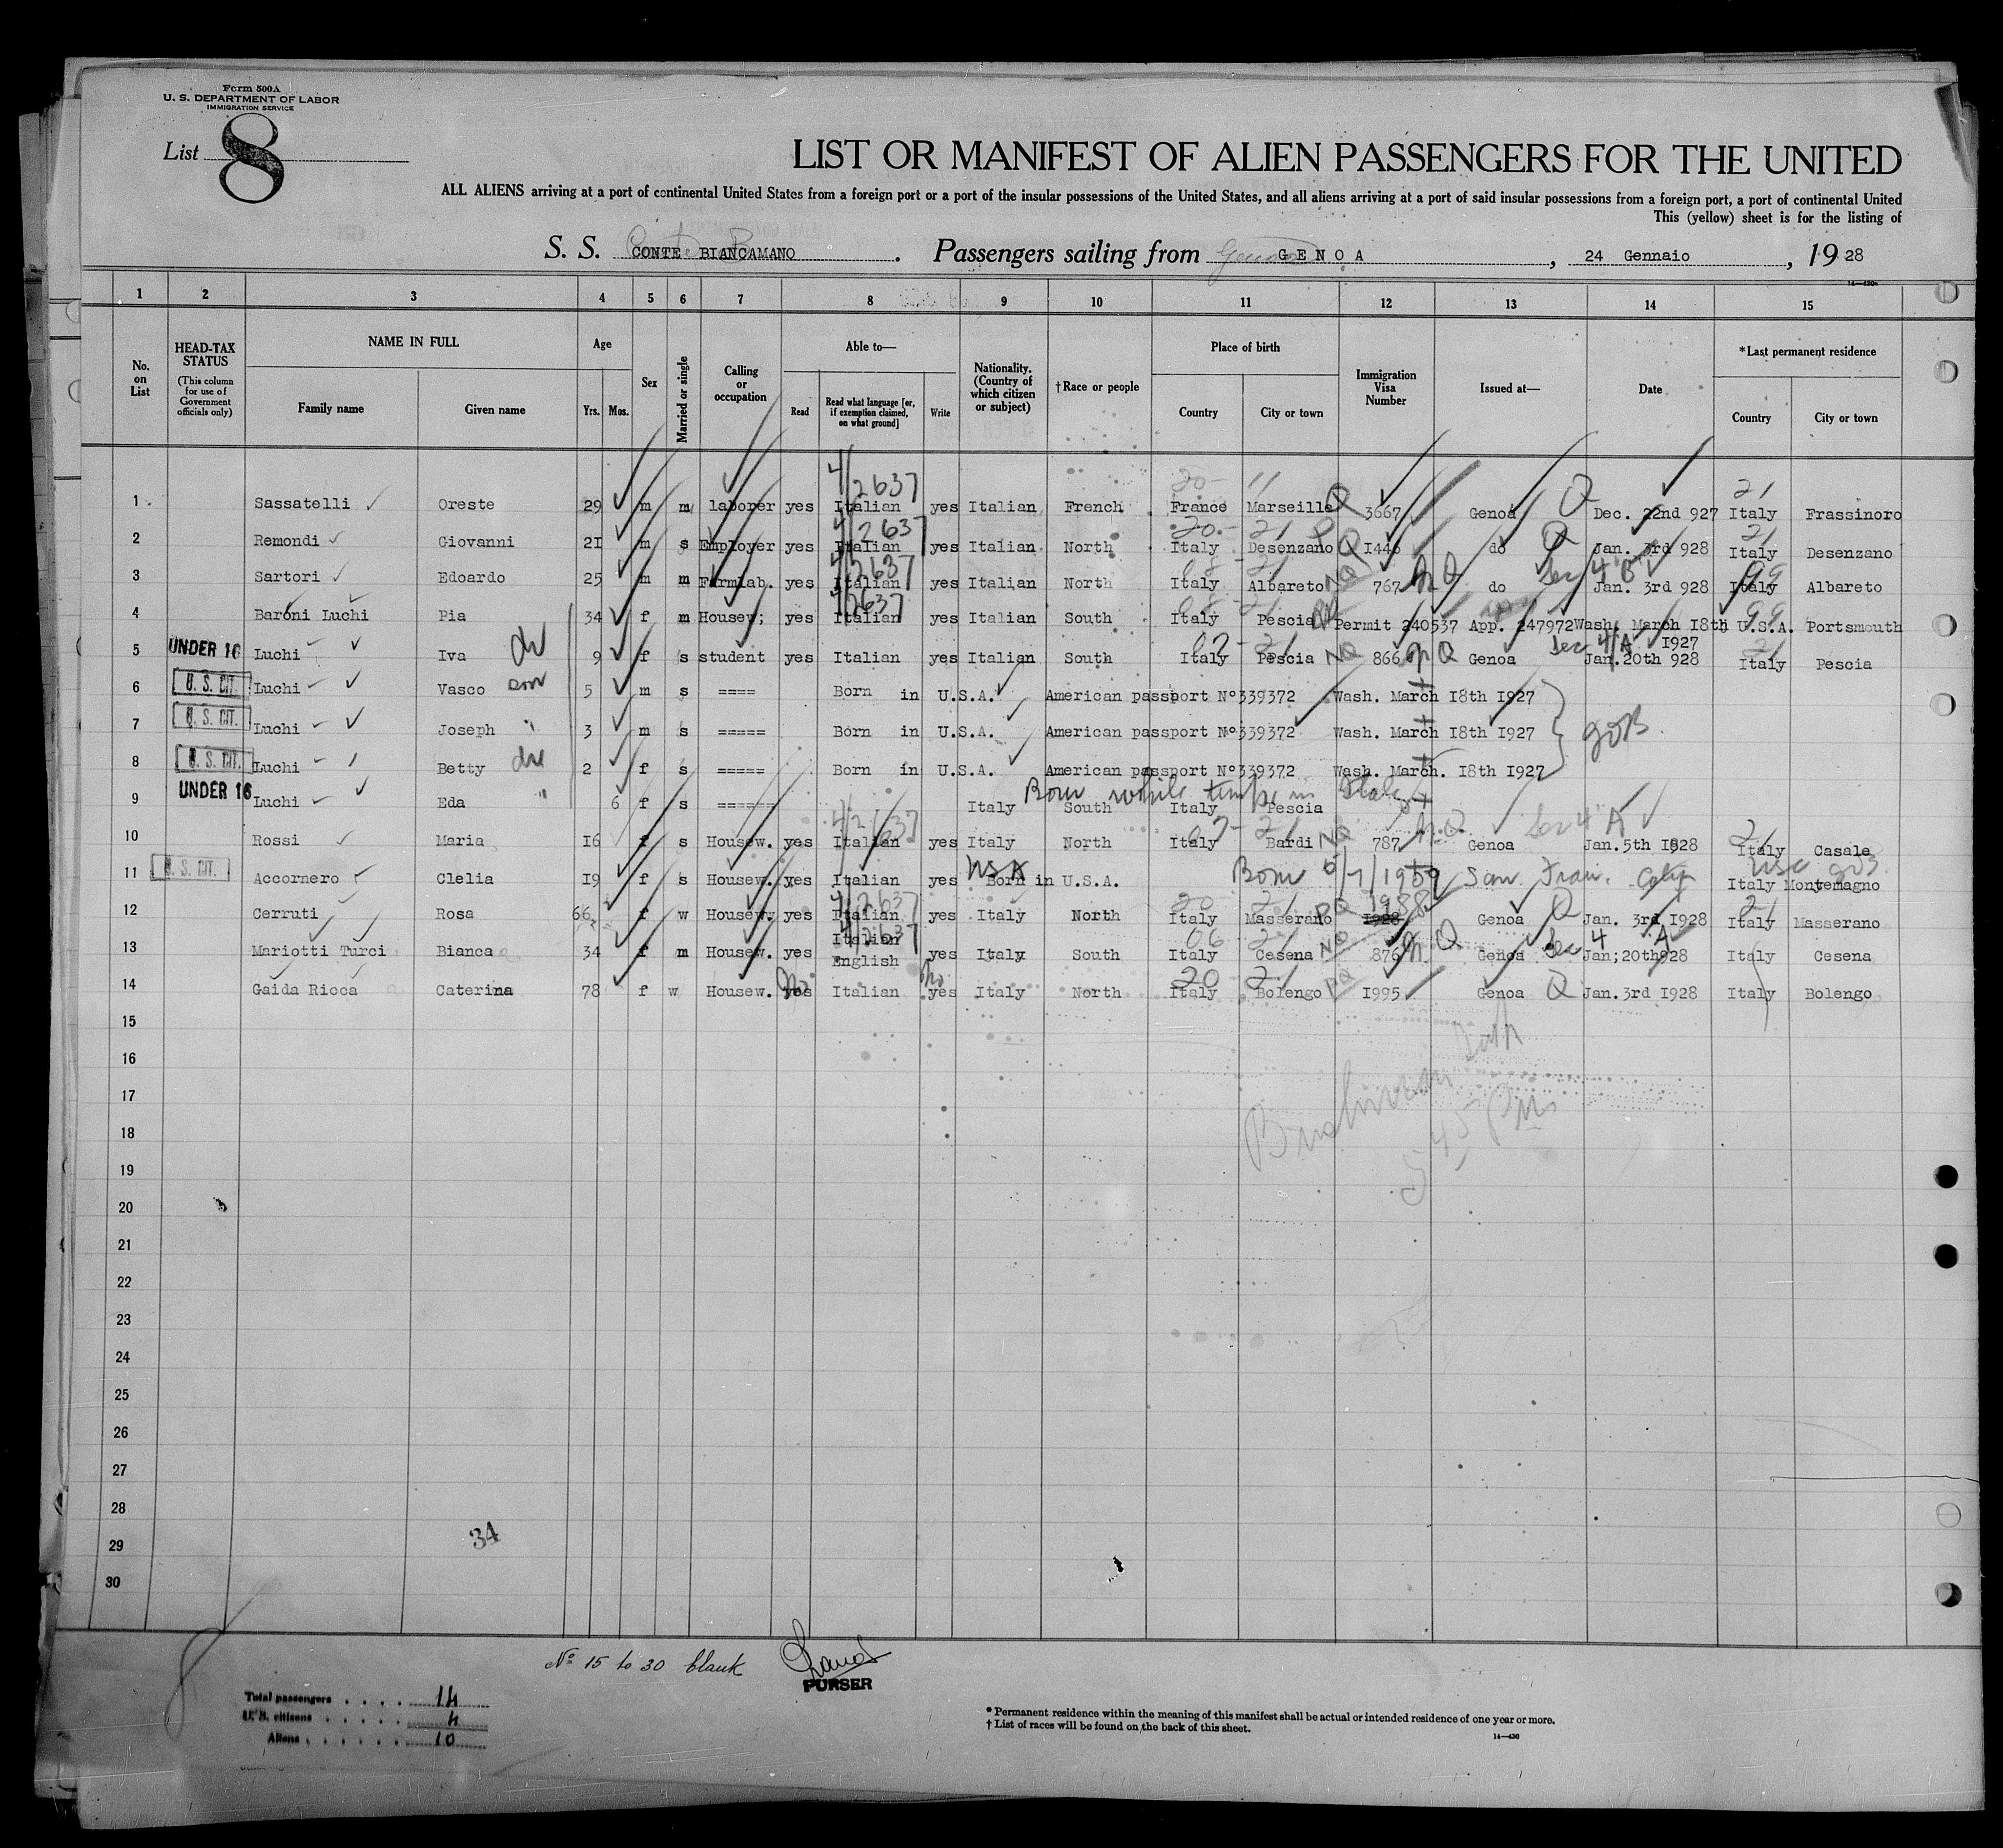 Form 500A
U. S. DEPARTMENT OF LABOR
IMMIGRATION SERVICE
List 8
LIST OR MANIFEST OF ALIEN PASSENGERS FOR THE UNITED
ALL ALIENS arriving at a port of continental United States from a foreign port or a port of the insular possessions of the United States, and all aliens arriving at a port of said insular possessions from a foreign port, a port of continental United
This (yellow) sheet is for the listing of
S. S. CONTE BIANCAMANO. Passengers sailing from GENOA, 24 Gennaio, 1928
1 2 3 4 5 6 7 8 9 10 11 12 13 14 15
No. on List
HEAD-TAX STATUS (This column for use of Government officials only)
NAME IN FULL Family name Given name
Age Yrs. Mos.
Sex
Married or single
Calling or occupation
Able to— Read Read what language [or, if exemption claimed, on what ground] Write
Nationality. (Country of which citizen or subject)
†Race or people
Place of birth Country City or town
Immigration Visa Number
Issued at—
Date
*Last permanent residence Country City or town
1 Sassatelli Oreste 29 m m laborer yes 4/2637 Italian yes Italian French France Marseille Q 3667 Genoa Q Dec. 22nd 927 Italy Frassinoro
2 Remondi Giovanni 21 m s Employer yes 4/2637 Italian yes Italian North Italy Desenzano Q 1446 do Q Jan. 3rd 928 Italy Desenzano
3 Sartori Edoardo 25 m m Farmlab. yes 4/2637 Italian yes Italian North Italy Albareto NQ 767 N Q do Sec 4 B Jan. 3rd 928 Italy Albareto
4 Baroni Luchi Pia 34 f m Housew; yes 4/2637 Italian yes Italian South Italy Pescia Permit 240537 App. 247972 Wash. March 18th 1927 U.S.A. Portsmouth
UNDER 16
5 Luchi Iva 9 f s student yes Italian yes Italian South Italy Pescia NQ 866 N Q Genoa Sec 4 A Jan. 20th 928 Italy Pescia
U. S. CIT.
6 Luchi Vasco 5 m s ==== Born in U.S.A. American passport N° 339372 Wash. March 18th 1927
U. S. CIT.
7 Luchi Joseph " 3 m s ===== Born in U.S.A. American passport N° 339372 Wash. March 18th 1927
U. S. CIT.
8 Luchi Betty 2 f s ===== Born in U.S.A. American passport N° 339372 Wash. March. 18th 1927
UNDER 16
Born while temp. in Italy
9 Luchi Eda " 6 f s ====== Italy South Italy Pescia
10 Rossi Maria 16 f s Housew. yes 4/2637 Italian yes Italy North Italy Bardi NQ 787 N.Q. Genoa Sec 4 A Jan. 5th 1928 Italy Casale
U. S. CIT.
11 Accornero Clelia 19 f s Housew. yes Italian yes USA Born in U.S.A. Born 5/7/1909 San Fran. Calif USC Italy Montemagno
12 Cerruti Rosa 66 f w Housew. yes 4/2637 Italian yes Italy North Italy Masserano 1988 1928 Genoa Q Jan. 3rd 1928 Italy Masserano
13 Mariotti Turci Bianca 34 f m Housew. yes 4/2637 Italian English yes Italy South Italy Cesena NQ 876 N. Q Genoa Sec 4 A Jan; 20th 928 Italy Cesena
14 Gaida Ricca Caterina 78 f w Housew. yes No Italian yes No Italy North Italy Bolengo 1995 Genoa Q Jan. 3rd 1928 Italy Bolengo
15
16
17
18
19
20
21
22
23
24
25
26
27
28
29
30
34
5 45 Pm
N° 15 to 30 blank
PURSER
Total passengers . . . . 14
U. S. citizens . . . . . 4
Aliens . . . . . . 10
* Permanent residence within the meaning of this manifest shall be actual or intended residence of one year or more.
† List of races will be found on the back of this sheet.
14—430